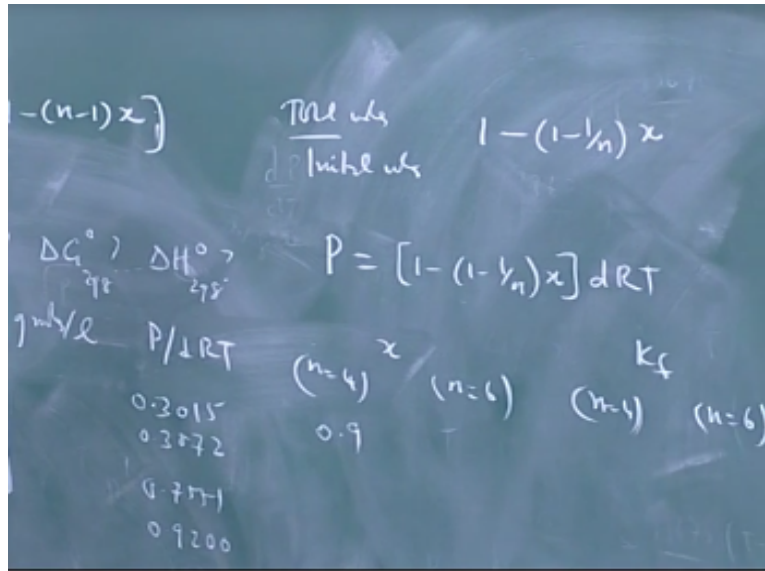 -(n-1)x]
Total mls
Initial mls
1-(1-1/n)x
ΔG°₂₉₈? ΔH°₂₉₈?
P = [1-(1-1/n)x] dRT
P/dRT
x
K_f
(n=4) (n=6) (n=4) (n=6)
0.3015
0.3872 0.9
0.9200